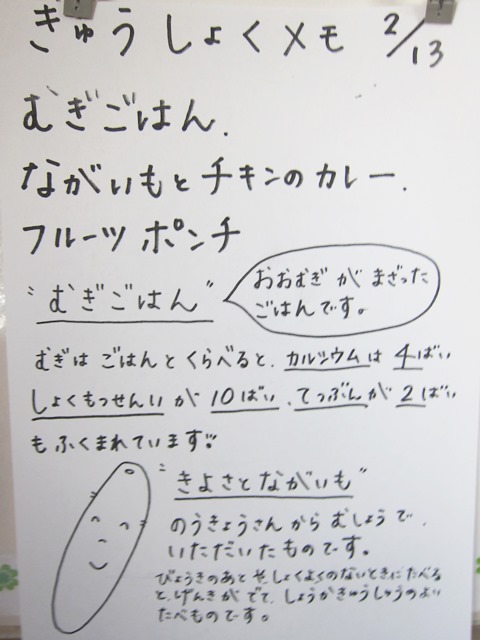 きゅうしょくメモ 2/13
むぎごはん.
ながいもとチキンのカレー.
フルーツポンチ
"むぎごはん"
おおむぎがまざった
ごはんです。
むぎはごはんとくらべると、カルシウムは4ばい
しょくもっせんいが10ばい、てつぶんが2ばい
もふくまれています。
"きよさとながいも"
のうきょうさんからむしょうで、
いただいたものです。
びょうきのあとや、しょくよくのないときにたべる
と、げんきがでて、しょうかきゅうしゅうのよい
たべものです。